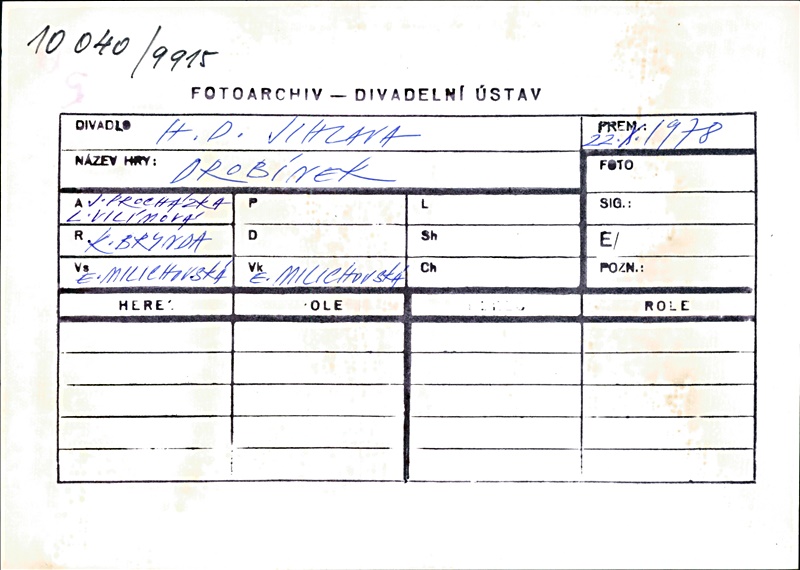 10 040/9915
FOTOARCHIV — DIVADELNÍ ÚSTAV
DIVADLO H. D. JIHLAVA
PREM.: 22.X.1978
NÁZEV HRY: DROBÍNEK
FOTO
A J. PROCHÁZKA
L. VILÍMOVÁ
P
L
SIG.:
R K. BRYNDA
D
Sh
E/
Vs E. MILICHOVSKÁ
Vk E. MILICHOVSKÁ
Ch
POZN.:
HERE
OLE
ROLE